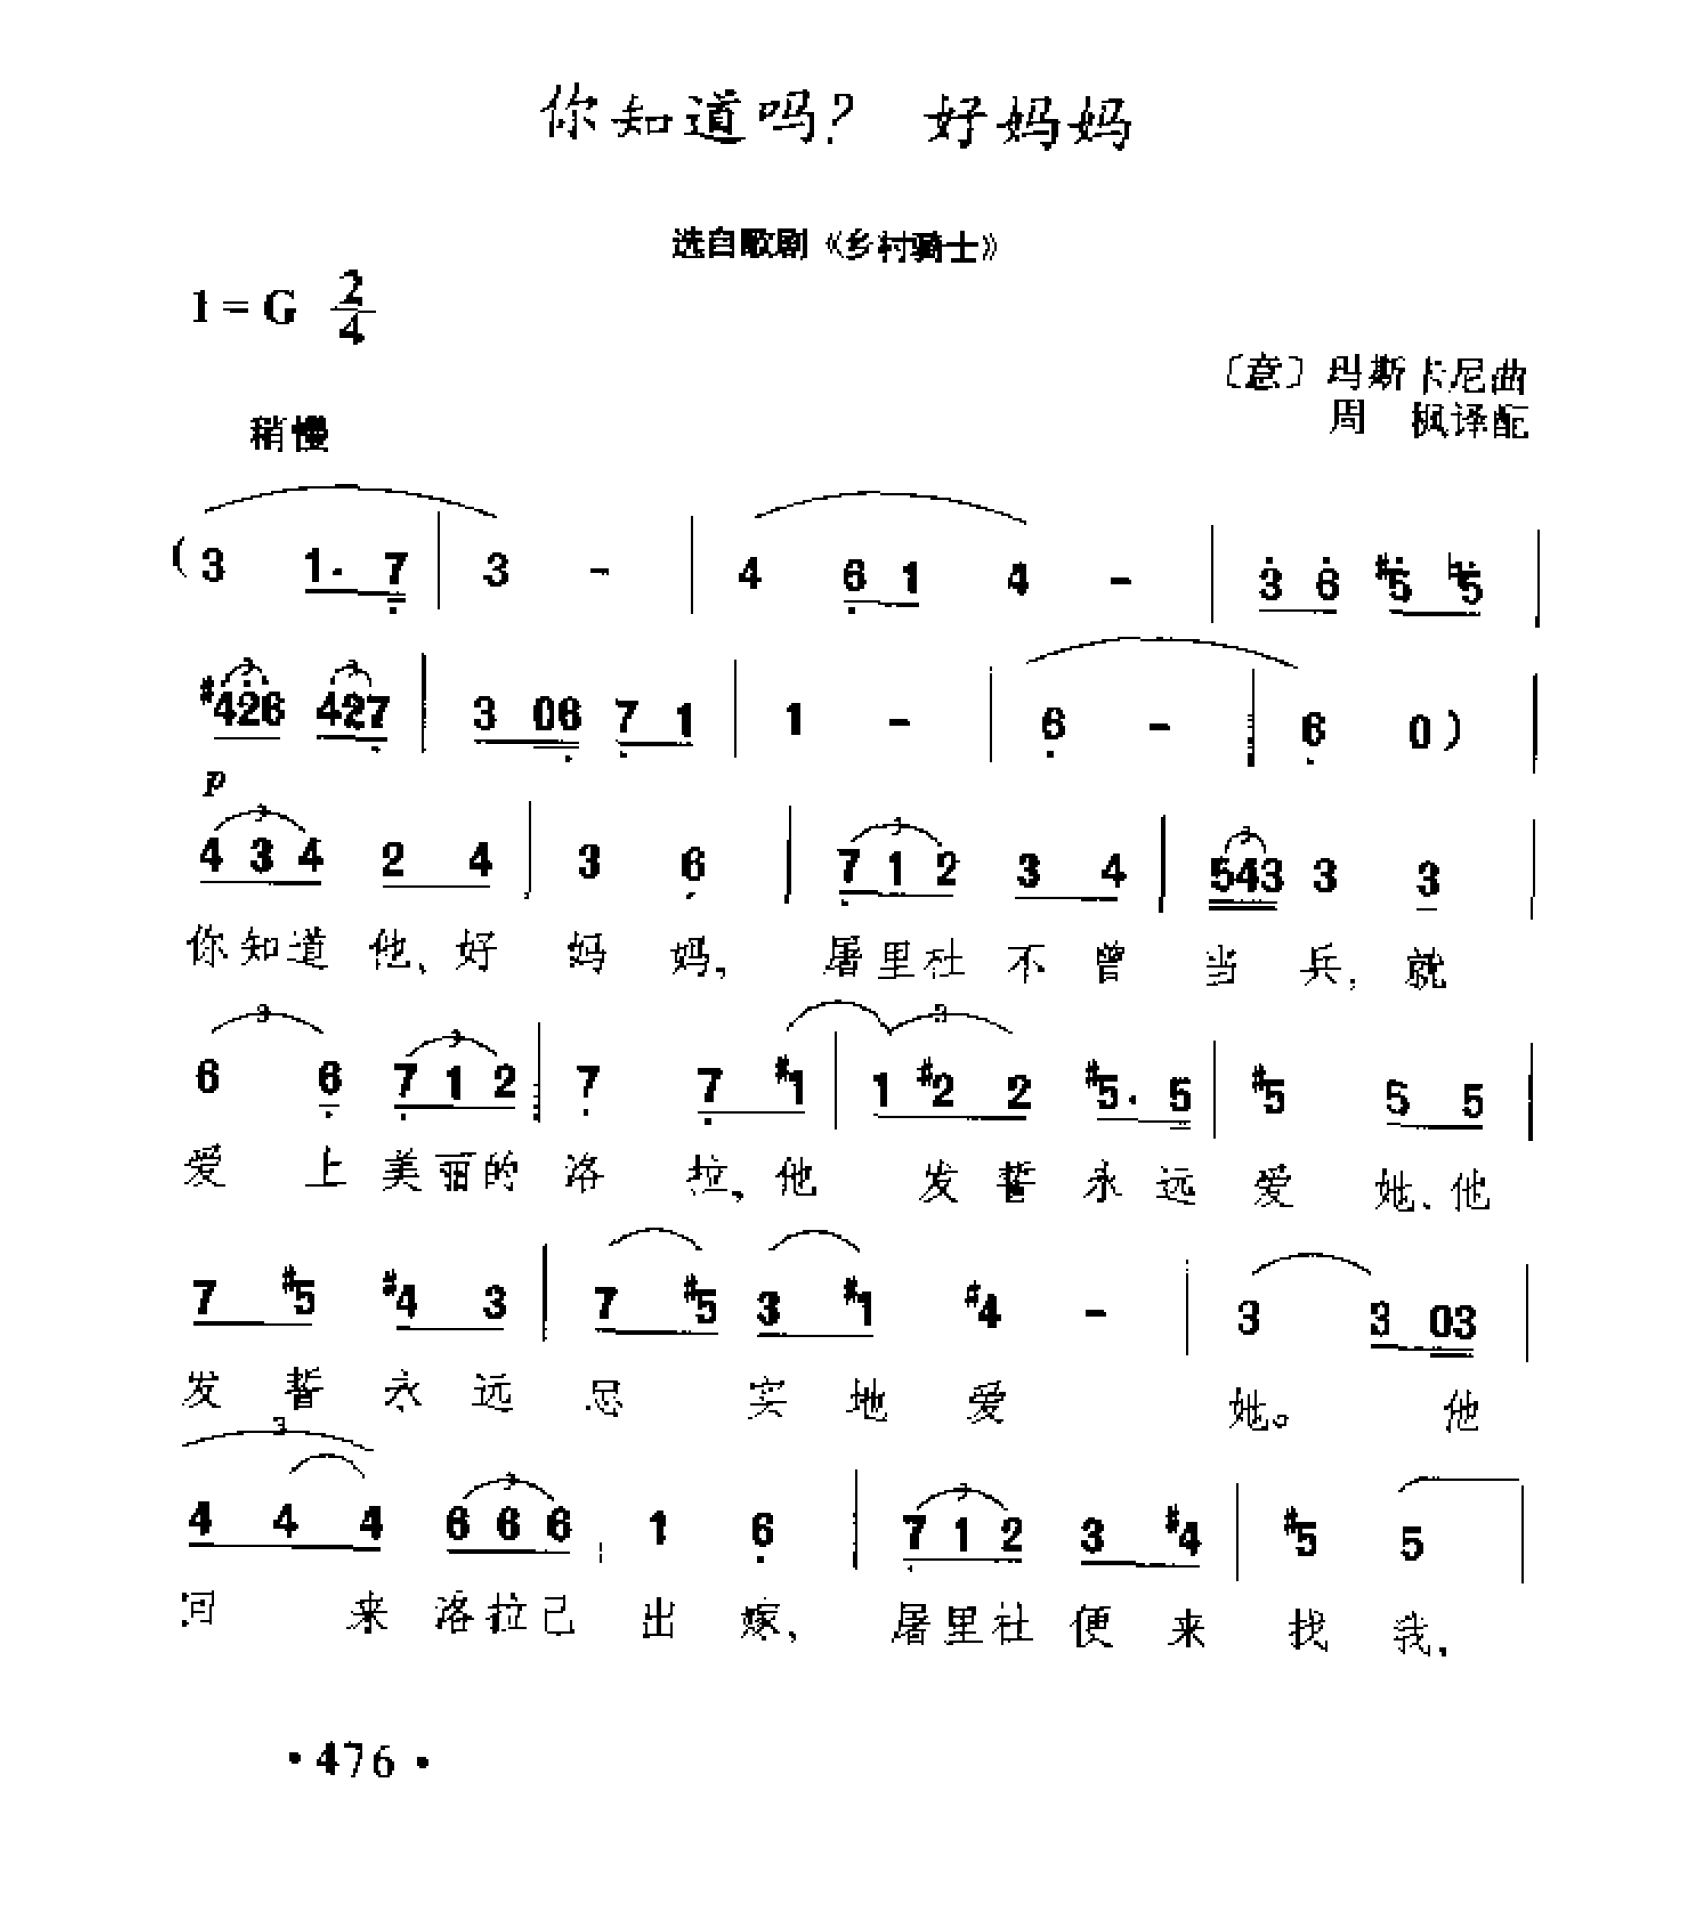 你知道吗? 好妈妈
选自歌剧《乡村骑士》
1 = G 2/4
〔意〕玛斯卡尼曲
周 枫译配
稍慢
( 3 1. 7 | 3 - | 4 6 1 4 - | 3 6 #5 ♮5 |
#426 427 | 3 06 7 1 | 1 - | 6 - | 6 0 ) |
p
4 3 4 2 4 | 3 6 | 7 1 2 3 4 | 543 3 3 |
你知道 他、好 妈 妈, 屠里社 不 曾 当 兵, 就
6 6 7 1 2 | 7 7 #1 | 1 #2 2 #5. 5 | #5 5 5 |
爱 上 美丽的 洛 拉, 他 发 誓 永 远 爱 她、他
7 #5 #4 3 | 7 #5 3 #1 #4 - | 3 3 03 |
发 誓 永 远 忠 实 地 爱 她。 他
4 4 4 6 6 6 | 1 6 | 7 1 2 3 #4 | #5 5 |
回 来 洛拉已 出 嫁, 屠里社 便 来 找 我,
3 3 3 3 3 3 3 3 3 3
· 476 ·